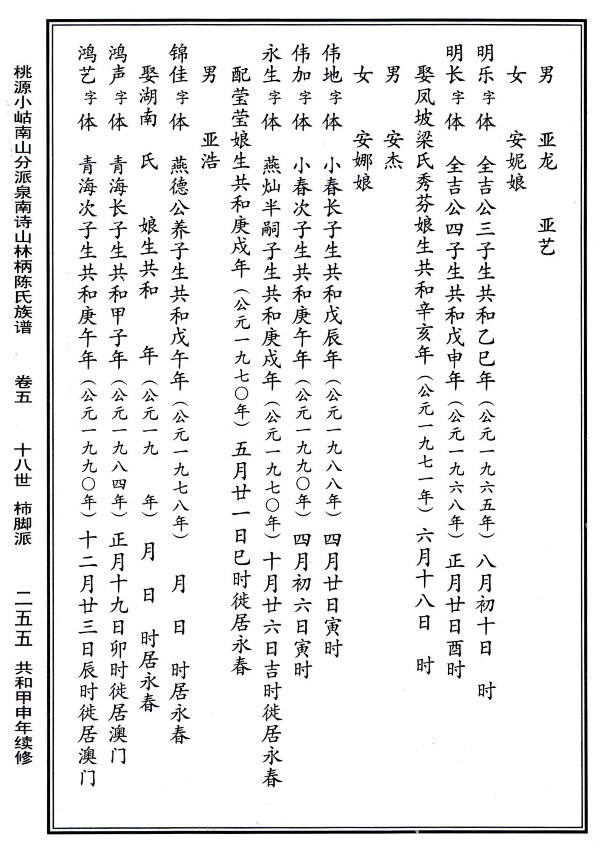 男　亚龙　亚艺
女　安妮娘
明乐字　体　全吉公三子生共和乙巳年（公元一九六五年）八月初十日　时
明长字　体　全吉公四子生共和戊申年（公元一九六八年）正月廿日酉时
娶凤坡梁氏秀芬娘生共和辛亥年（公元一九七一年）六月十八日　时
男　安杰
女　安娜娘
伟地字　体　小春长子生共和戊辰年（公元一九八八年）四月廿日寅时
伟加字　体　小春次子生共和庚午年（公元一九九〇年）四月初六日寅时
永生字　体　燕灿半嗣子生共和庚戌年（公元一九七〇年）十月廿六日吉时徙居永春
配莹莹娘生共和庚戌年（公元一九七〇年）五月廿一日巳时徙居永春
男　亚浩
锦佳字　体　燕德公养子生共和戊午年（公元一九七八年）　月　日　时居永春
娶湖南　氏　娘生共和　年（公元一九　年）　月　日　时居永春
鸿声字　体　青海长子生共和甲子年（公元一九八四年）正月十九日卯时徙居澳门
鸿艺字　体　青海次子生共和庚午年（公元一九九〇年）十二月廿三日辰时徙居澳门
桃源小岵南山分派泉南诗山林柄陈氏族谱　卷五　十八世　柿脚派　二五五　共和甲申年续修